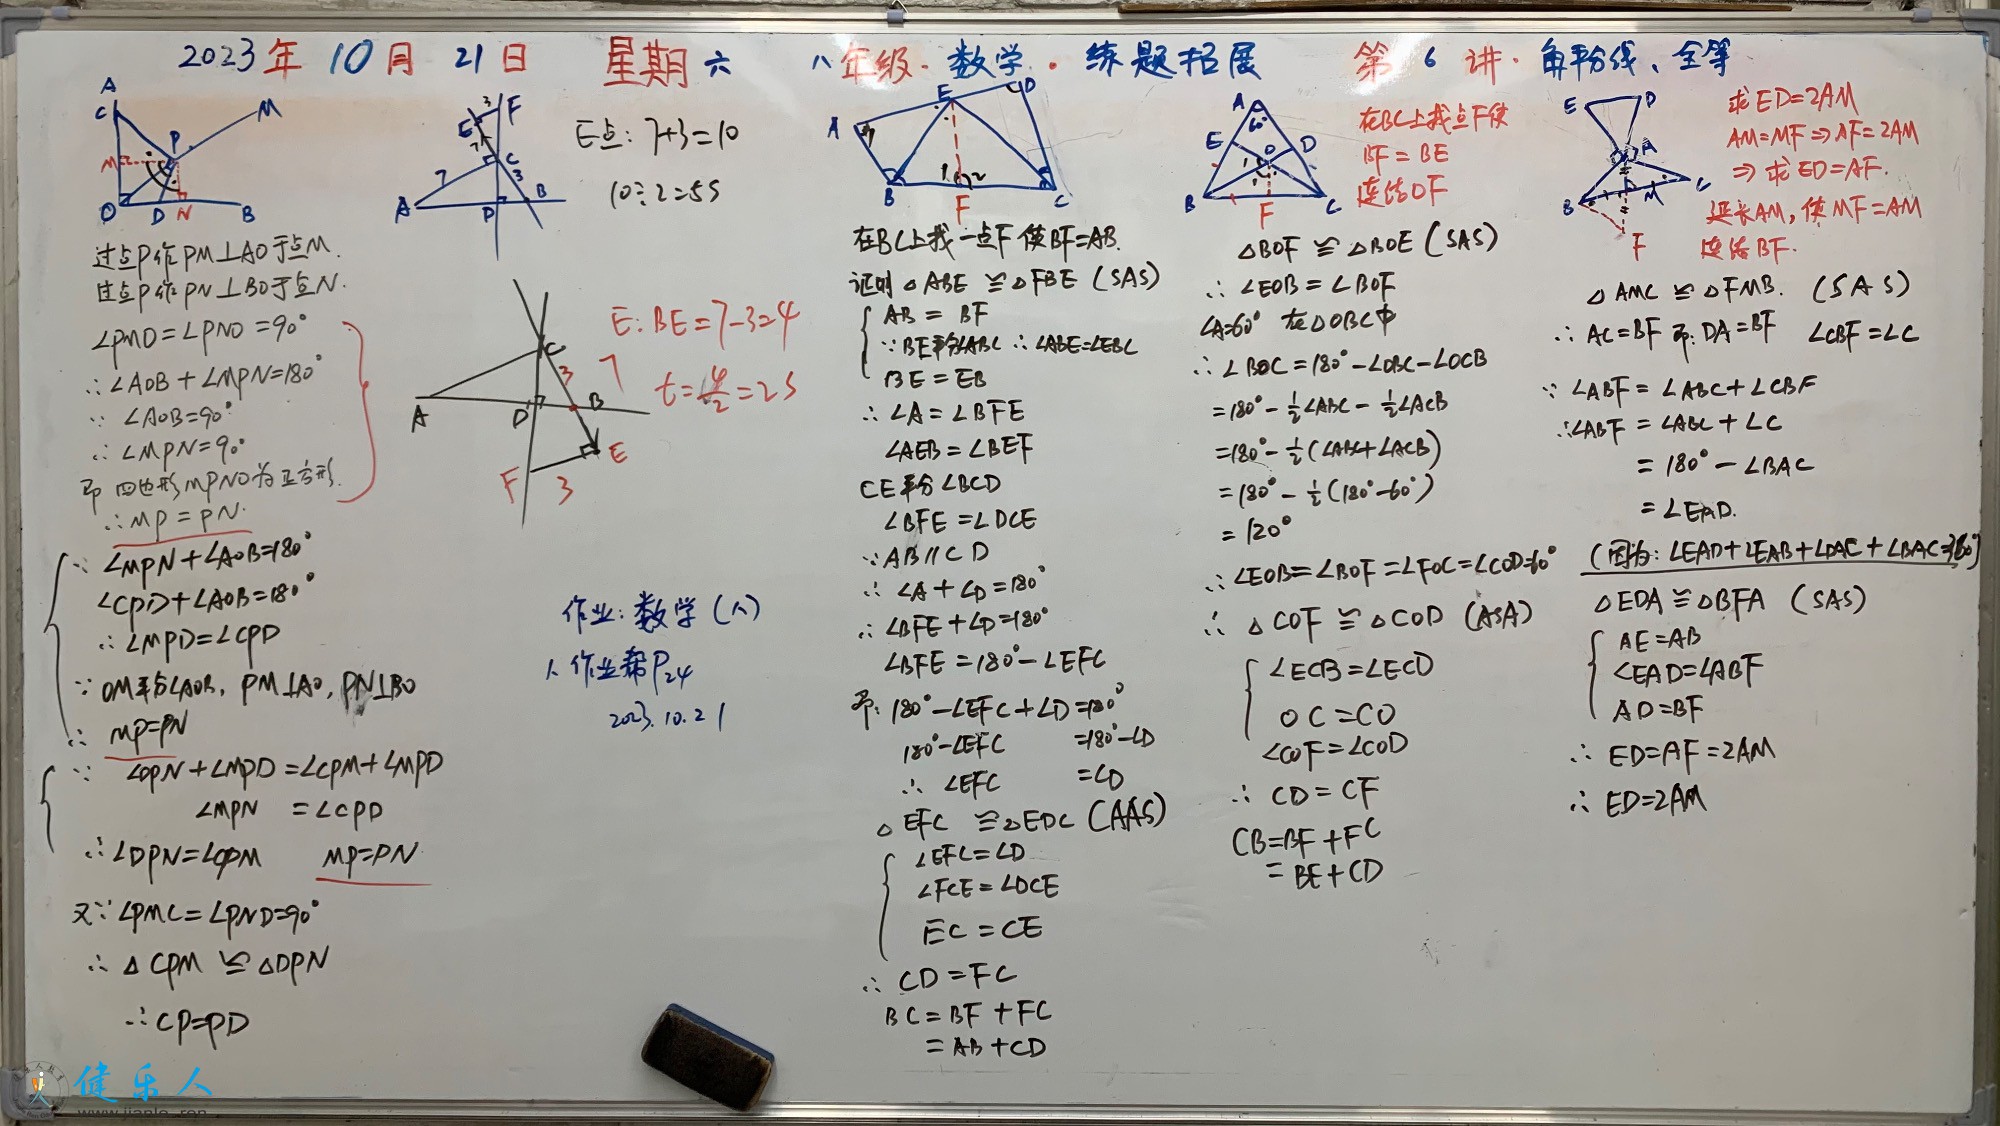 2023年 10月 21日 星期六 八年级·数学·练题拓展 第 6 讲·角平分线、全等
A
C
M
P
M
O
D
N
B
过点P作PM⊥AO于点M.
过点P作PN⊥BO于点N.
∠PMO=∠PNO=90°
∴∠AOB+∠MPN=180°
∵ ∠AOB=90°
∴ ∠MPN=90°
即 四边形MPNO为正方形.
∴MP=PN.
∵ ∠MPN+∠AOB=180°
∠CPD+∠AOB=180°
∴∠MPD=∠CPD
∵ OM平分∠AOB, PM⊥AO, PN⊥BO
∴ MP=PN
∵ ∠DPN+∠MPD=∠CPM+∠MPD
∠MPN =∠CPD
∴∠DPN=∠CPM MP=PN
又∵∠PMC=∠PND=90°
∴ △CPM ≌ △DPN
∴CP=PD
3
F
E
7
C
7
3
A
D
B
E点: 7+3=10
10÷2=5S
C
3
7
A
D
B
E
F
3
E: BE=7-3=4
t=4/2=2S
作业: 数学(八)
1、作业帮P24
2023.10.21
E
D
A
1
2
B
F
C
在BC上找一点F使BF=AB.
证明△ABE ≌ △FBE (SAS)
AB = BF
∵BE平分∠ABC ∴∠ABE=∠EBC
BE=EB
∴ ∠A=∠BFE
∠AEB=∠BEF
CE平分∠BCD
∠BFE=∠DCE
∵AB∥CD
∴ ∠A+∠D=180°
∴∠BFE+∠D=180°
∠BFE=180°-∠EFC
即: 180°-∠EFC+∠D=180°
180°-∠EFC =180°-∠D
∴ ∠EFC =∠D
△EFC ≌△EDC (AAS)
∠EFC=∠D
∠FCE=∠DCE
EC=CE
∴ CD=FC
BC=BF+FC
=AB+CD
A
60°
E
D
O
B
F
C
在BC上找点F使
BF=BE
连结OF
△BOF ≌ △BOE (SAS)
∴ ∠EOB=∠BOF
∠A=60° 在△OBC中
∴∠BOC=180°-∠OBC-∠OCB
=180°-½∠ABC-½∠ACB
=180°-½(∠ABC+∠ACB)
=180°-½(180°-60°)
=120°
∴∠EOB=∠BOF=∠FOC=∠COD=60°
∴ △COF≌△COD (ASA)
∠ECB=∠ECD
OC=CO
∠COF=∠COD
∴ CD=CF
CB=BF+FC
=BE+CD
E
D
A
B
M
C
F
求ED=2AM
AM=MF⇒AF=2AM
⇒求ED=AF.
延长AM, 使MF=AM
连结BF.
△AMC ≌ △FMB. (SAS)
∴ AC=BF 即: DA=BF ∠CBF=∠C
∵ ∠ABF=∠ABC+∠CBF
∴∠ABF=∠ABC+∠C
=180°-∠BAC
=∠EAD.
(因为: ∠EAD+∠EAB+∠DAC+∠BAC=360°)
△EDA≌△BFA (SAS)
AE=AB
∠EAD=∠ABF
AD=BF
∴ ED=AF=2AM
∴ ED=2AM
健乐人